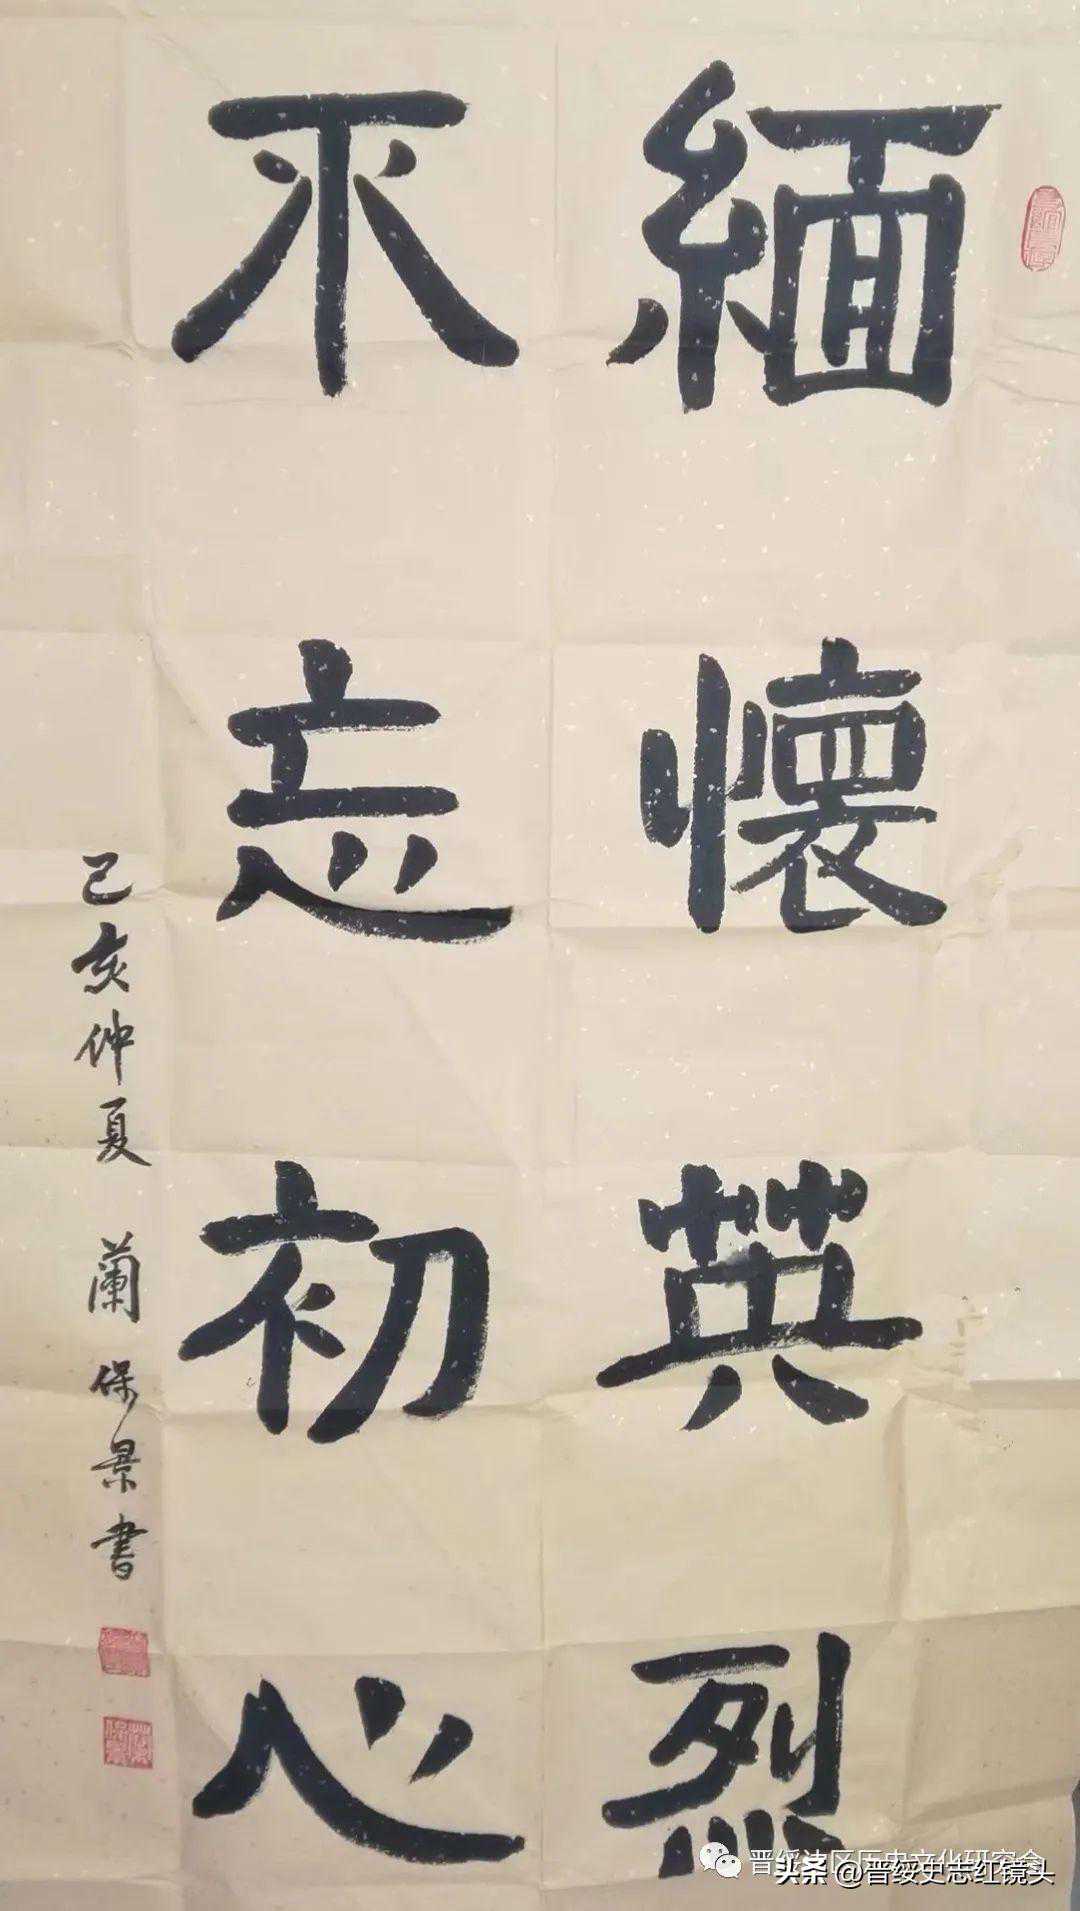 緬懷英烈
不忘初心
己亥仲夏 蘭保景書
晋绥边区历史文化研究会
头条 @晋绥史志红镜头